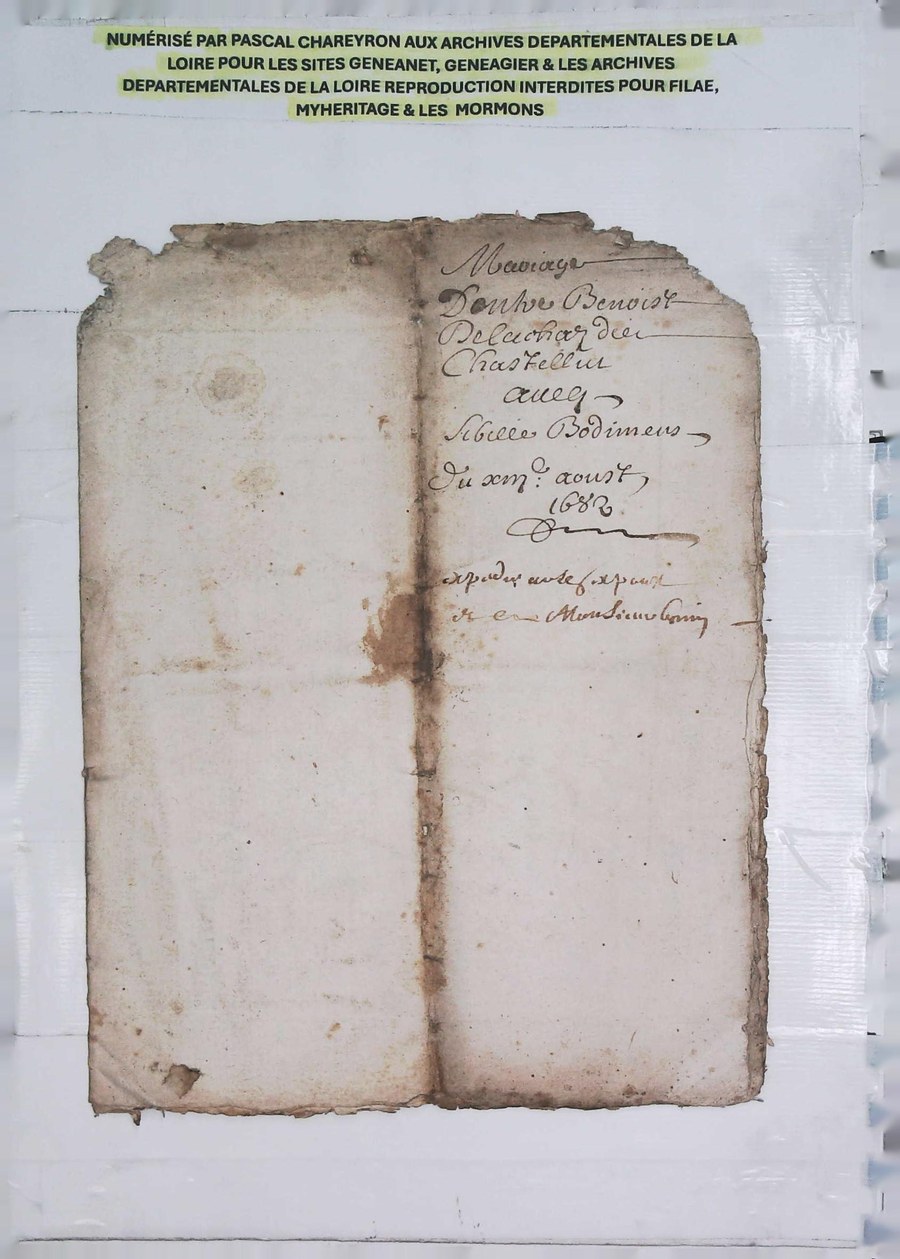 NUMÉRISÉ PAR PASCAL CHAREYRON AUX ARCHIVES DEPARTEMENTALES DE LA
LOIRE POUR LES SITES GENEANET, GENEAGIER & LES ARCHIVES
DEPARTEMENTALES DE LA LOIRE REPRODUCTION INTERDITES POUR FILAE,
MYHERITAGE & LES MORMONS
Mariage
D'entre Benoist
Delachaz dict
Chastellut
avecq
Sibille Bodimens
Du aoust
1682
Monsieur